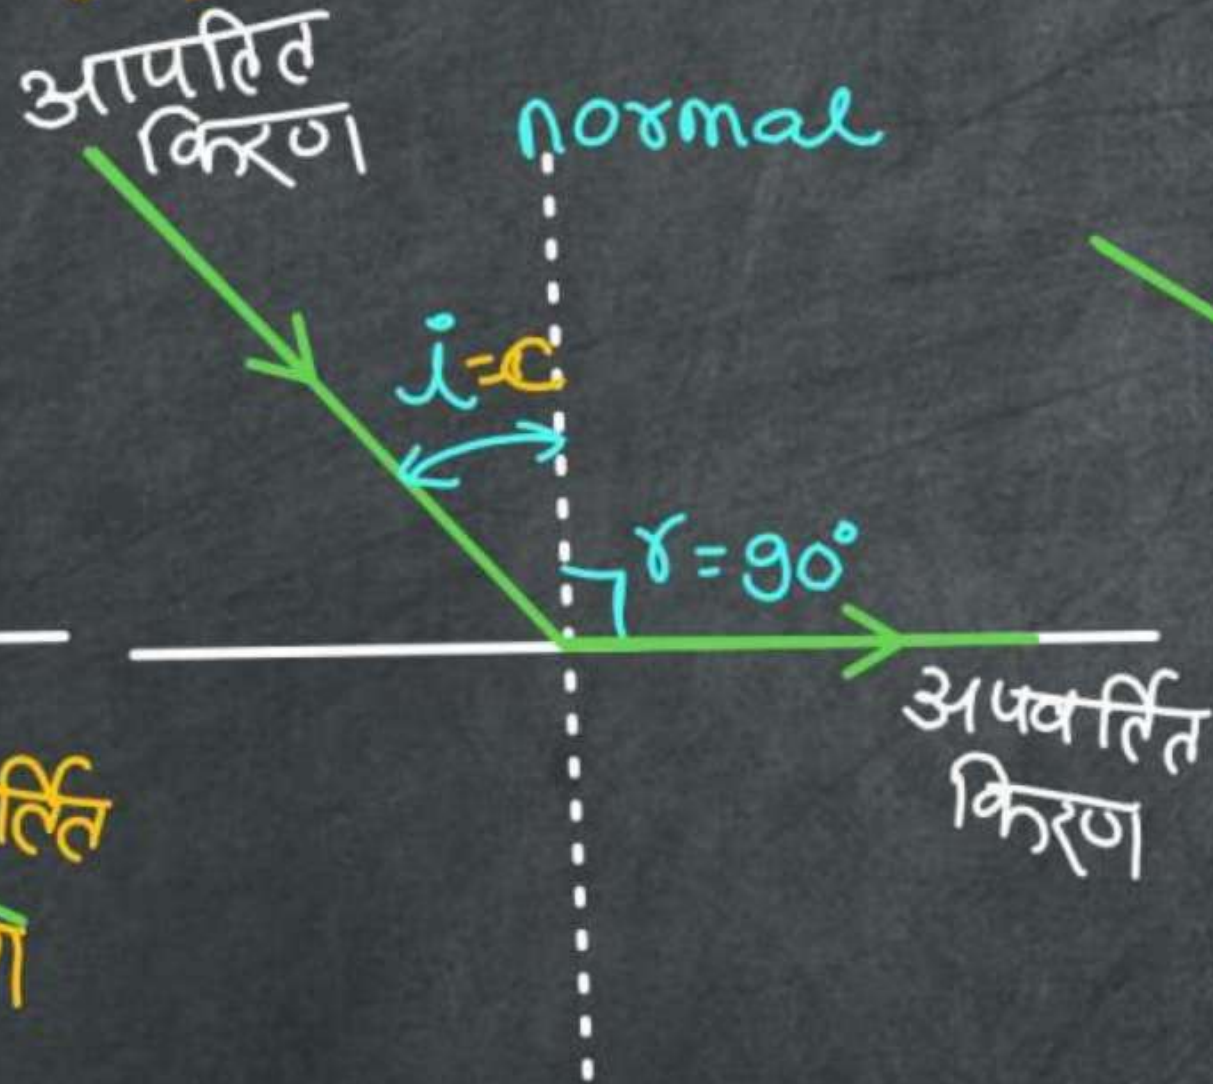 आपतित
किरण
normal
i=c
r=90°
अपवर्तित
किरण
र्तित